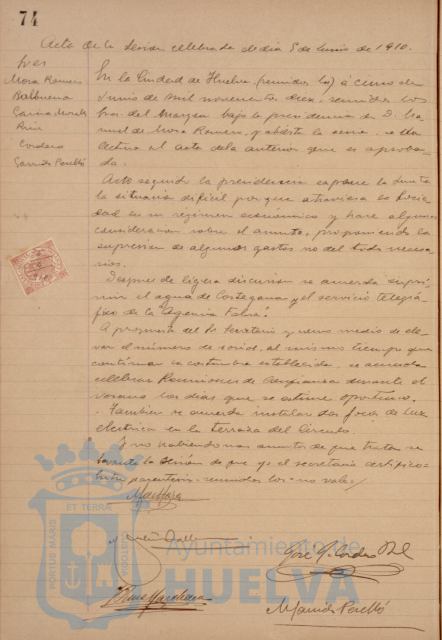 74
Acta de la sesión celebrada el día 5 de Junio de 1910.
Sres
Mora Romero
Balbuena
Garcia Morales
Ruiz
Cordero
Garrido Perelló
En la Ciudad de Huelva (reunidos los) á cinco de
Junio de mil novecientos diez, reunidos los
Sres. del Margen bajo la presidencia de D. Ma-
nuel de Mora Romero, y abierta la sesión se dio
lectura al acta de la anterior que es aproba-
da.
Acto seguido la presidencia expone a la Junta
la situación dificil por que atraviesa la Socie-
dad en su regimen economico y hace algunas
consideraciones sobre el asunto, proponiendo la
supresión de algunos gastos no del todo necesa-
rios.
Despues de ligera discusion se acuerda supri-
mir el agua de Cortegana y el servicio telegrá-
fico de la "Agencia Fabra".
A propuesta del Sr. Secretario y como medio de ele-
var el número de socios, al mismo tiempo que
continuar la costumbre establecida, se acuerda
celebrar Reuniones de Confianza durante el
verano los dias que se estime oportuno.
Tambien se acuerda instalar dos focos de luz
electrica en la terraza del Circulo.
Y no habiendo mas asuntos de que tratar se
levantó la sesión de que yo el secretario certifico.
Entre parentesis = reunidos los = no vale /
M. de Mora
José G. Cordero
Garrido Perelló
PORTUS MARIS ET TERRAE CUSTODIA
Ayuntamiento de
HUELVA